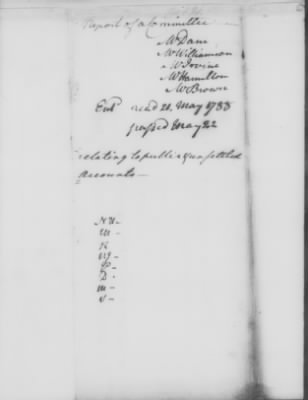 Report of a Committee
Mr Dane
Mr Williamson
Mr Irvine
Mr Hamilton
Mr Brown
Entd read 21. May 1788
passed May 22
relating to public & unsettled
accounts—
N H –
M –
R
P –
D –
m –